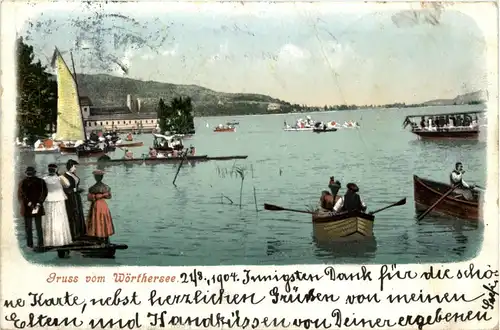 Gruss vom Wörthersee. 24/8. 1904. Innigsten Dank für die schö-
ne Karte, nebst herzlichen Grüßen von meinen
Eltern und Handküssen von Deiner ergebenen